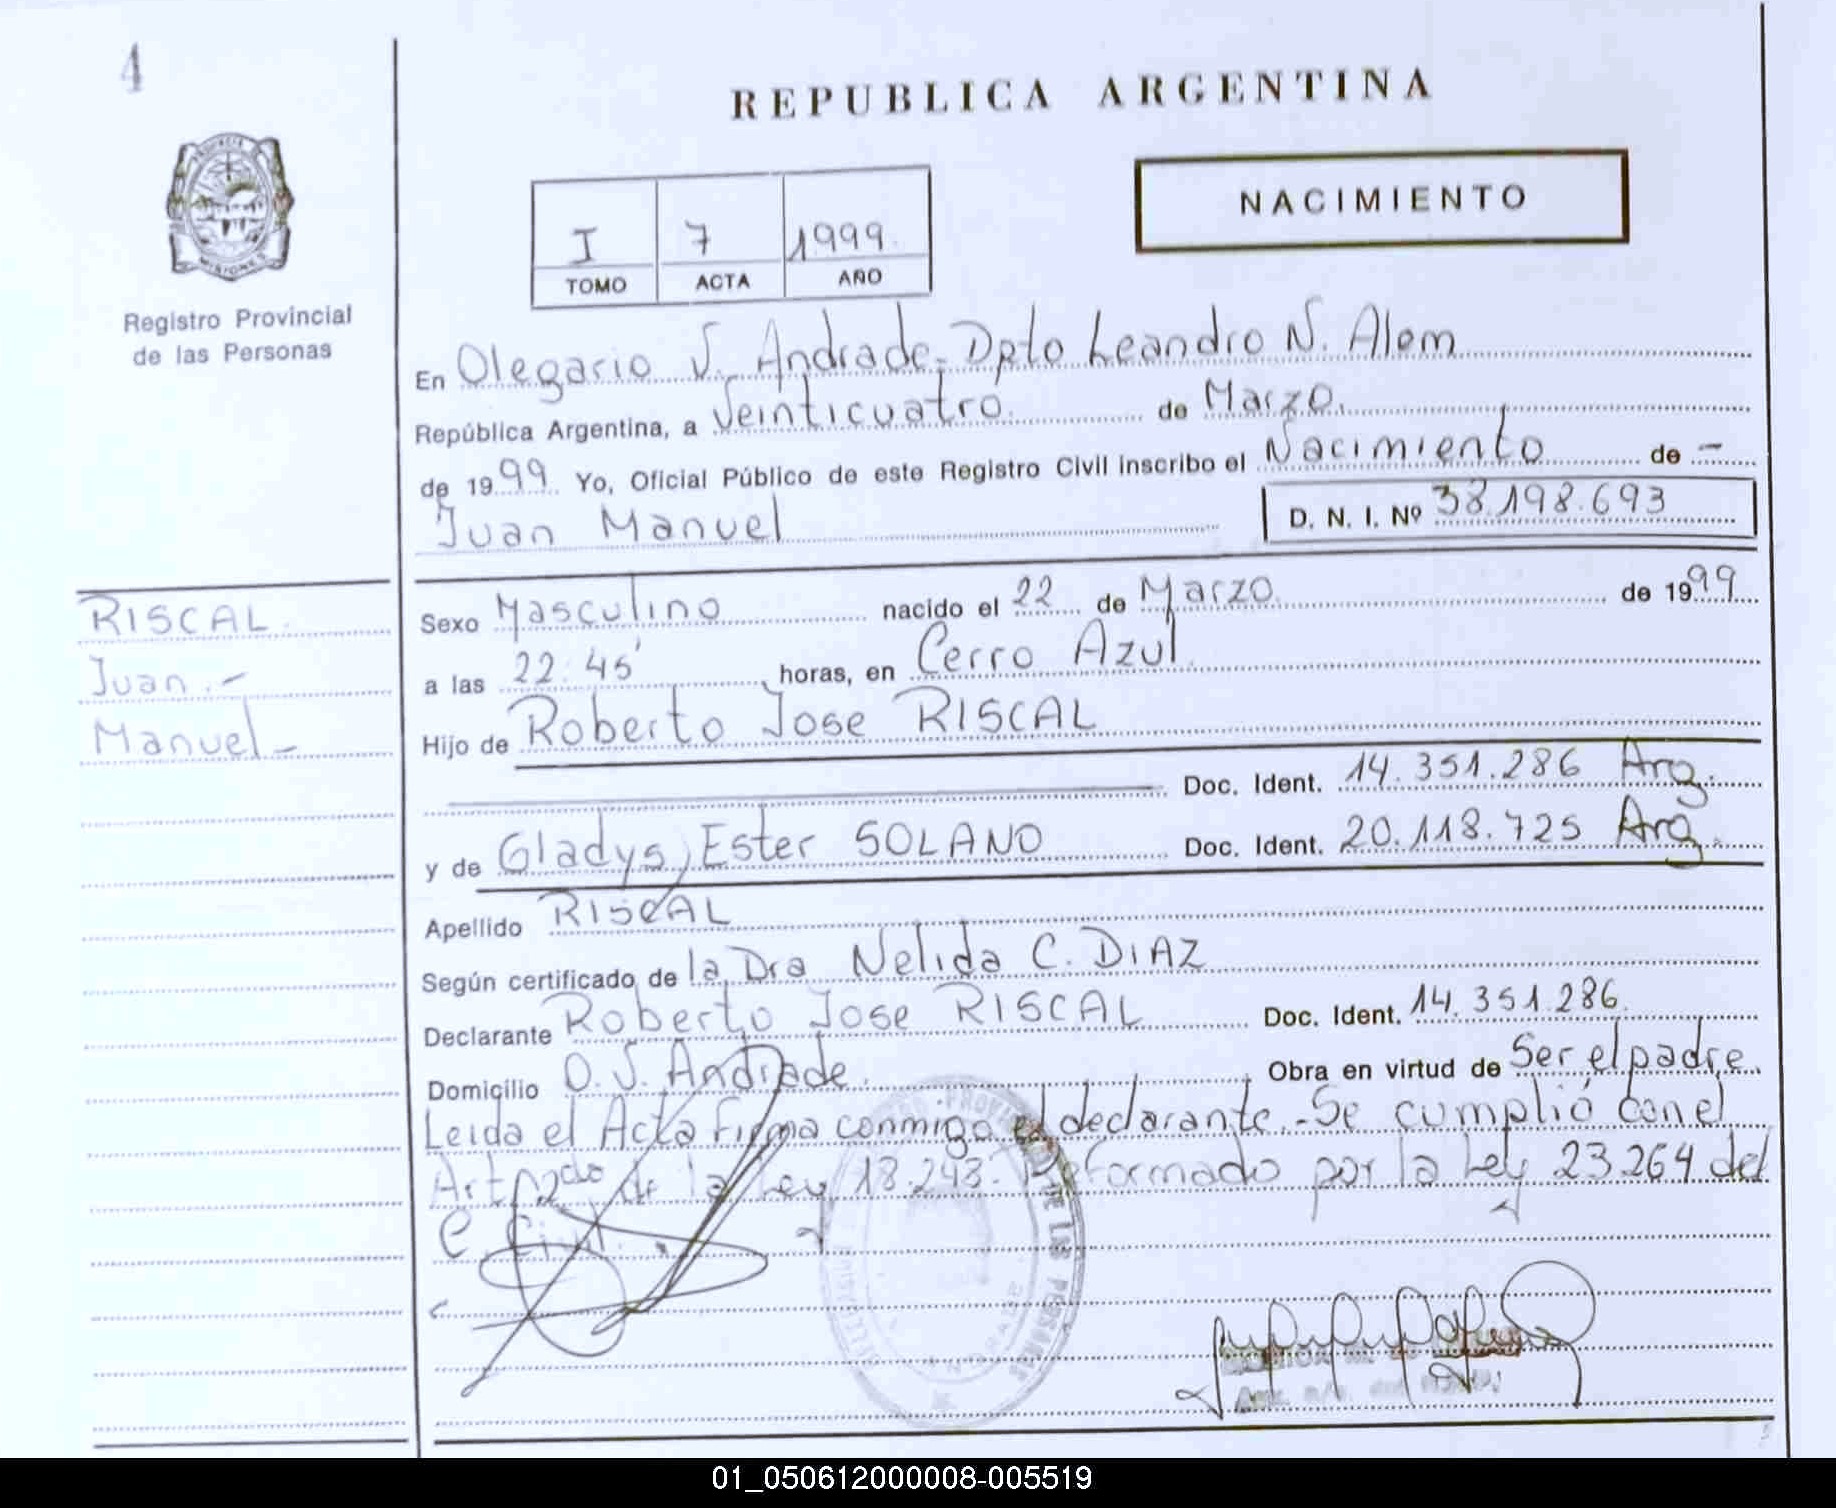 4
REPUBLICA ARGENTINA
NACIMIENTO
I 7 1999
TOMO ACTA AÑO
MISIONES
Registro Provincial
de las Personas
En Olegario V. Andrade - Dpto Leandro N. Alem
República Argentina, a Veinticuatro de Marzo
de 1999 Yo, Oficial Público de este Registro Civil inscribo el Nacimiento de -
Juan Manuel D. N. I. Nº 38.198.693
RISCAL
Juan.-
Manuel-
Sexo Masculino nacido el 22 de Marzo de 1999
a las 22.45' horas, en Cerro Azul
Hijo de Roberto Jose RISCAL
Doc. Ident. 14.351.286 Arg.
y de Gladys Ester SOLANO Doc. Ident. 20.118.725 Arg.
Apellido RISCAL
Según certificado de la Dra Nelida C. DIAZ
Declarante Roberto Jose RISCAL Doc. Ident. 14.351.286.
Domicilio O. V. Andrade. Obra en virtud de Ser el padre.
Leida el Acta Firma conmigo el declarante.- Se cumplió con el
Art 2do de la Ley 18.243. Reformado por la Ley 23.264 del
C. Civil.
DE LAS PERSONAS
01_050612000008-005519